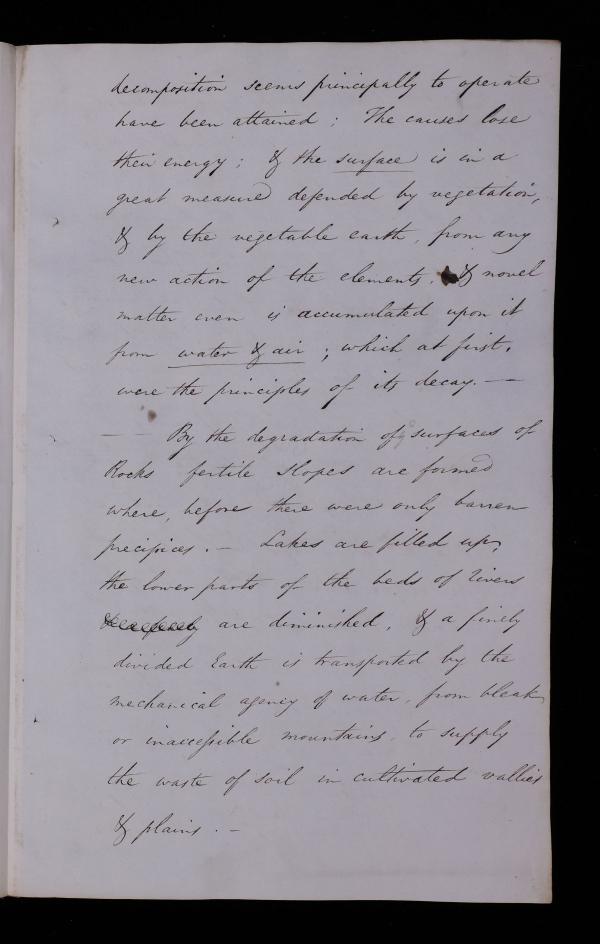 decomposition seems principally to operate
have been attained ; The causes lose
their energy ; & the surface is in a
great measure defended by vegetation,
& by the vegetable earth, from any
new action of the elements. & novel
matter even is accumulated upon it
from water & air ; which at first,
were the principles of its decay. —
— By the degradation of surfaces of
Rocks fertile slopes are formed
where, before there were only barren
precipices. — Lakes are filled up,
the lower parts of the beds of rivers
are diminished, & a finely
divided Earth is transported by the
mechanical agency of water, from bleak
or inaccessible mountains to supply
the waste of soil in cultivated vallies
& plains. —